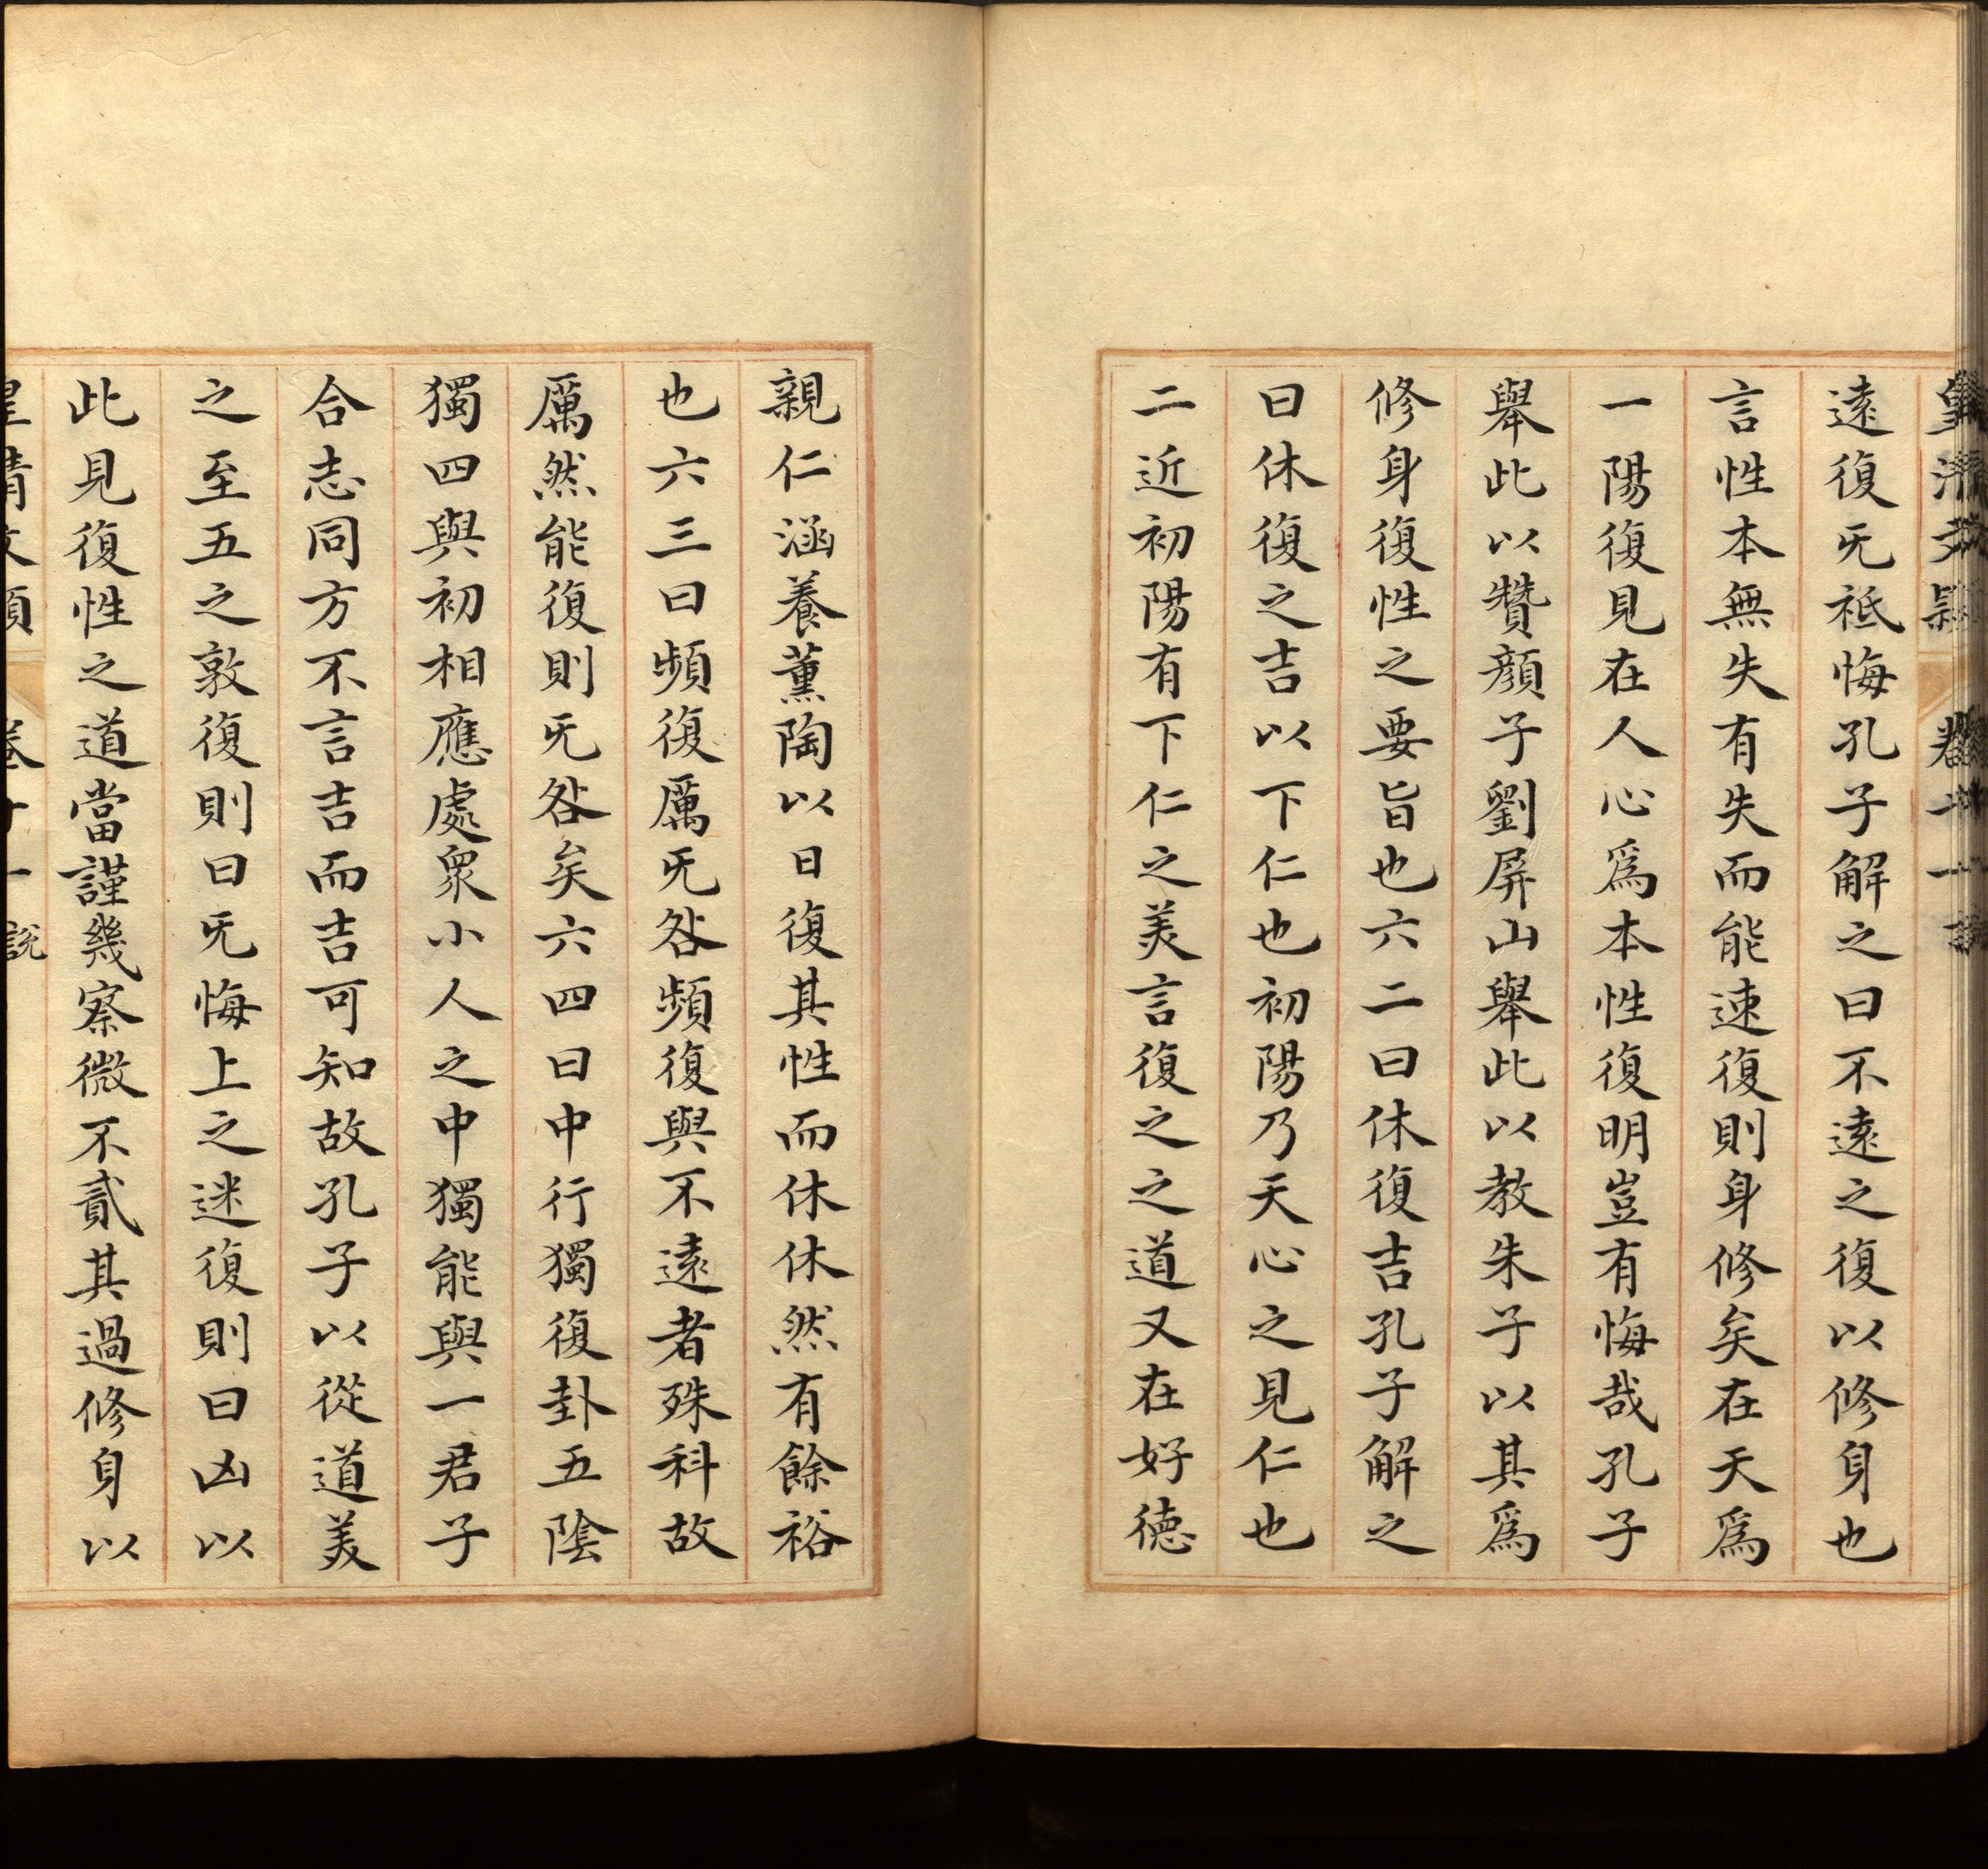 遠復无祗悔孔子解之曰不遠之復以修身也
言性本無失有失而能速復則身修矣在天為
一陽復見在人心為本性復明豈有悔哉孔子
舉此以贊顏子劉屏山舉此以教朱子以其為
修身復性之要旨也六二曰休復吉孔子解之
曰休復之吉以下仁也初陽乃天心之見仁也
二近初陽有下仁之美言復之之道又在好德
親仁涵養薰陶以日復其性而休休然有餘裕
也六三曰頻復厲无咎頻復與不遠者殊科故
厲然能復則无咎矣六四曰中行獨復卦五陰
獨四與初相應處衆小人之中獨能與一君子
合志同方不言吉而吉可知故孔子以從道美
之至五之敦復則曰无悔上之迷復則曰凶以
此見復性之道當謹幾察微不貳其過修身以